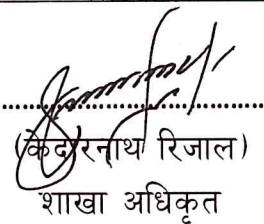 (केदारनाथ रिजाल)
शाखा अधिकृत